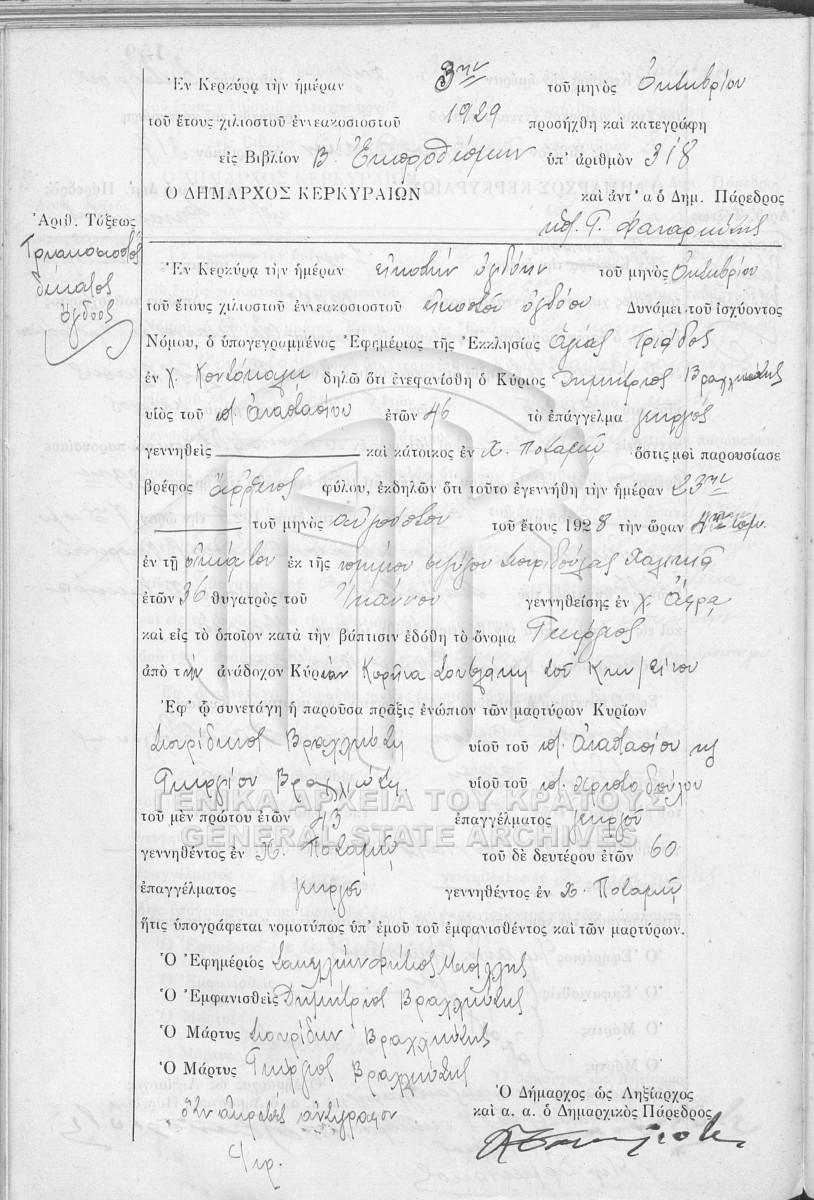 Ἐν Κερκύρᾳ τὴν ἡμέραν 3ην τοῦ μηνὸς Ὀκτωβρίου
τοῦ ἔτους χιλιοστοῦ ἐννεακοσιοστοῦ 1929 προσήχθη καὶ κατεγράφη
εἰς Βιβλίον Β. Ἐκπροθέσμων ὑπ' ἀριθμὸν 318
Ο ΔΗΜΑΡΧΟΣ ΚΕΡΚΥΡΑΙΩΝ καὶ ἀντ' α ὁ Δημ. Πάρεδρος
Ἀριθ. Τάξεως
Τριακοσιοστὸς
δέκατος
ὄγδοος
Ἐν Κερκύρᾳ τὴν ἡμέραν εἰκοστὴν ὀγδόην τοῦ μηνὸς Ὀκτωβρίου
τοῦ ἔτους χιλιοστοῦ ἐννεακοσιοστοῦ εἰκοστοῦ ὀγδόου Δυνάμει τοῦ ἰσχύοντος
Νόμου, ὁ ὑπογεγραμμένος Ἐφημέριος τῆς Ἐκκλησίας Ἁγίας Τριάδος
ἐν χ. Κοντόκαλι δηλῶ ὅτι ἐνεφανίσθη ὁ Κύριος Δημήτριος Βραχλιώτης
υἱὸς τοῦ ποτ. Ἀναστασίου ἐτῶν 46 τὸ ἐπάγγελμα γεωργὸς
γεννηθεὶς καὶ κάτοικος ἐν χ. Ποταμῷ ὅστις μοὶ παρουσίασε
βρέφος ἄρρενος φύλου, ἐκδηλῶν ὅτι τοῦτο ἐγεννήθη τὴν ἡμέραν 23ην
τοῦ μηνὸς αὐγούστου τοῦ ἔτους 1928 τὴν ὥραν 4ην
ἐν τῇ οἰκίᾳ του ἐκ τῆς νομίμου συζύγου Σπυριδούλας
ἐτῶν 36 θυγατρὸς τοῦ Ἰωάννου γεννηθείσης ἐν χ. Ἄφρᾳ
καὶ εἰς τὸ ὁποῖον κατὰ τὴν βάπτισιν ἐδόθη τὸ ὄνομα Γεώργιος
ἀπὸ τὴν ἀνάδοχον Κυρίαν τοῦ Κων/τίνου
Ἐφ' ᾧ συνετάγη ἡ παροῦσα πρᾶξις ἐνώπιον τῶν μαρτύρων Κυρίων
Σπυρίδωνος Βραχλιώτη υἱοῦ τοῦ ποτ. Ἀναστασίου κ
Γεωργίου Βραχλιώτη υἱοῦ τοῦ ποτ. Χριστοδούλου
ΓΕΝΙΚΑ ΑΡΧΕΙΑ ΤΟΥ ΚΡΑΤΟΥΣ
τοῦ μὲν πρώτου ἐτῶν 43 ἐπαγγέλματος γεωργοῦ
GENERAL STATE ARCHIVES
γεννηθέντος ἐν χ. Ποταμῷ τοῦ δὲ δευτέρου ἐτῶν 60
ἐπαγγέλματος γεωργοῦ γεννηθέντος ἐν χ. Ποταμῷ
ἥτις ὑπογράφεται νομοτύπως ὑπ' ἐμοῦ τοῦ ἐμφανισθέντος καὶ τῶν μαρτύρων.
Ὁ Ἐφημέριος
Ὁ Ἐμφανισθεὶς Δημήτριος Βραχλιώτης
Ὁ Μάρτυς Σπυρίδων Βραχλιώτης
Ὁ Μάρτυς Γεώργιος Βραχλιώτης
Ὁ Δήμαρχος ὡς Ληξίαρχος
καὶ α. α. ὁ Δημαρχικὸς Πάρεδρος
ἀντίγραφον